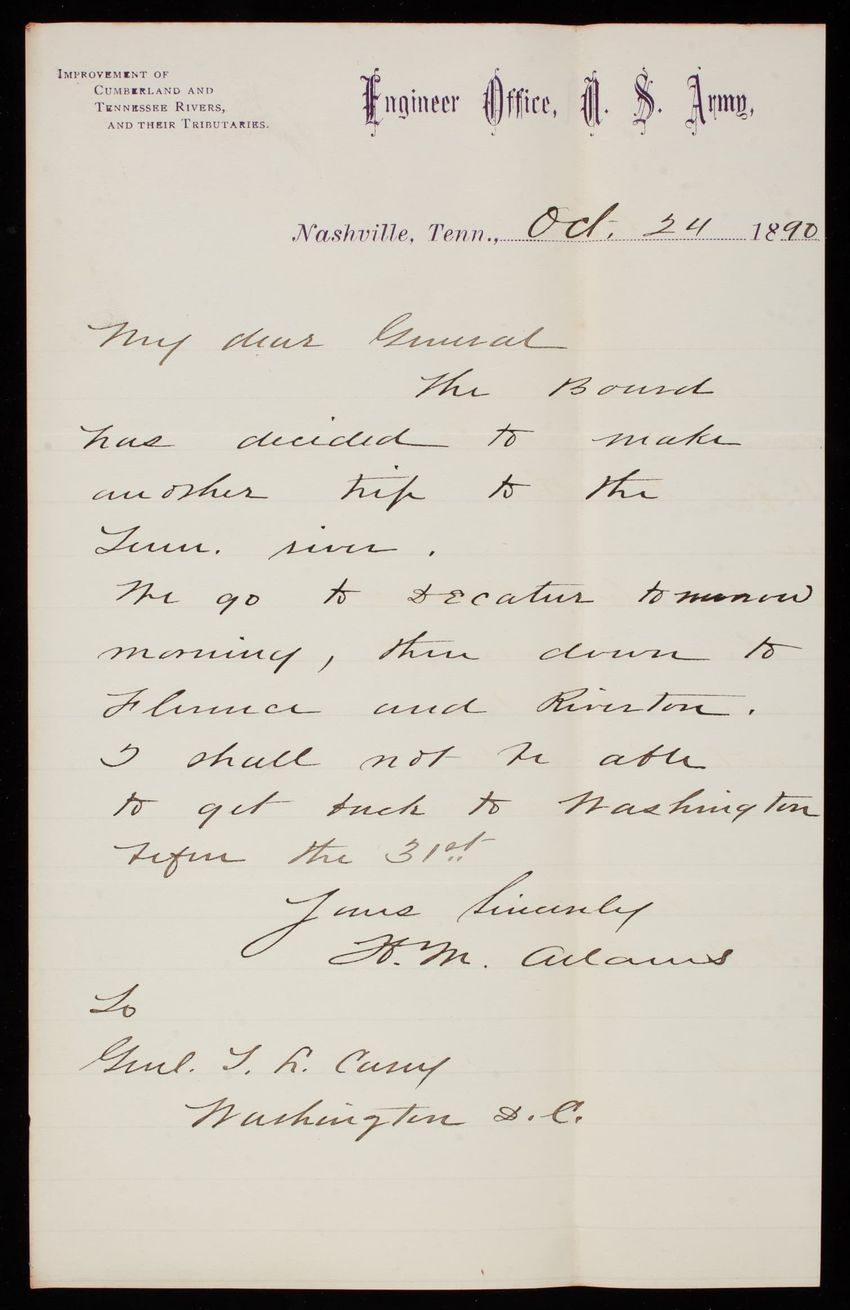 IMPROVEMENT OF
CUMBERLAND AND
TENNESSEE RIVERS,
AND THEIR TRIBUTARIES.
Engineer Office, U. S. Army,
Nashville, Tenn., Oct. 24 1890
My dear General
The Board
has decided to make
another trip to the
Tenn. river.
We go to Decatur tomorrow
morning, then down to
Florence and Riverton.
I shall not be able
to get back to Washington
before the 31st
Yours Sincerely
H. M. Adams
To
Genl. T. L. Casey
Washington D.C.